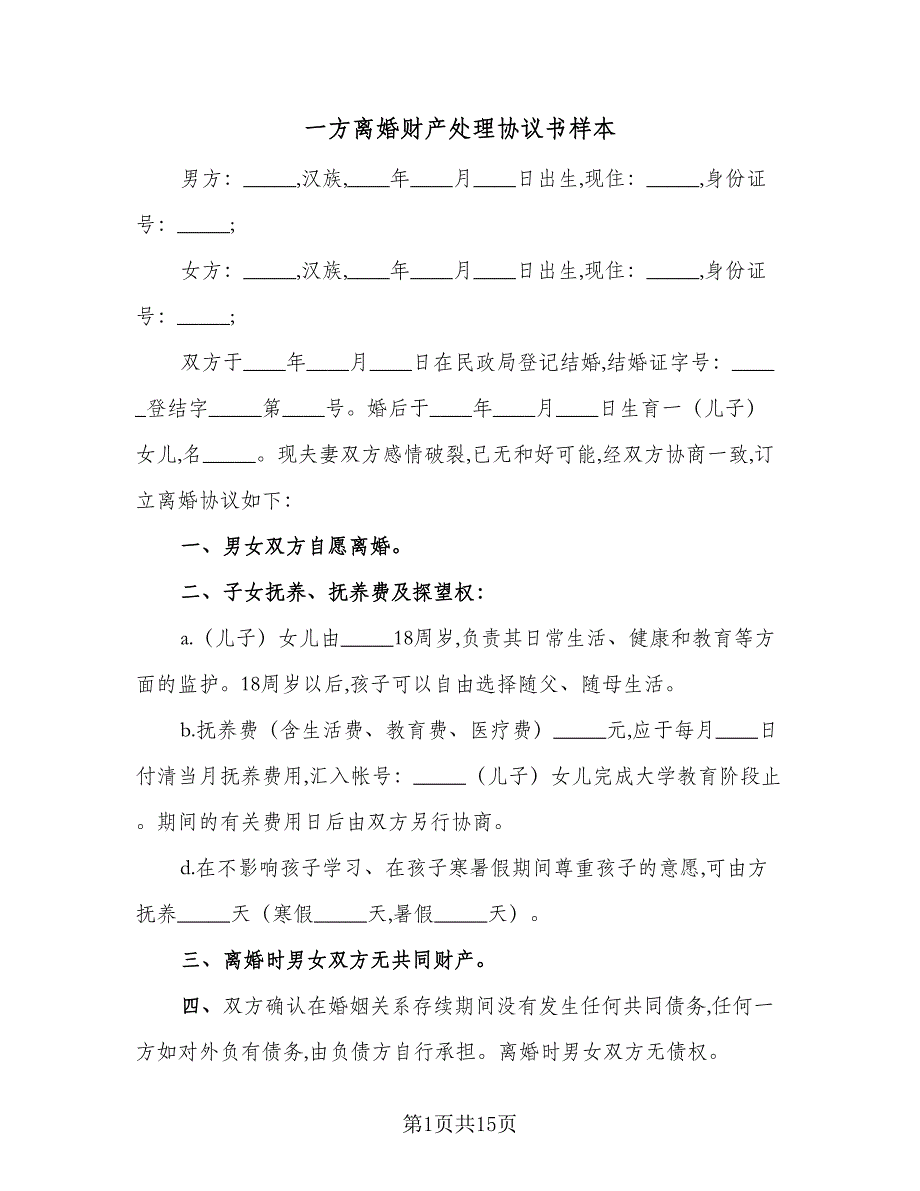 一方离婚财产处理协议书样本
男方：_____,汉族,____年____月____日出生,现住：_____,身份证
号：_____;
女方：_____,汉族,____年____月____日出生,现住：_____,身份证
号：_____;
双方于____年____月____日在民政局登记结婚,结婚证字号：____
_登结字_____第____号。婚后于____年____月____日生育一（儿子）
女儿,名_____。现夫妻双方感情破裂,已无和好可能,经双方协商一致,订
立离婚协议如下：
一、男女双方自愿离婚。
二、子女抚养、抚养费及探望权：
a.（儿子）女儿由_____18周岁,负责其日常生活、健康和教育等方
面的监护。18周岁以后,孩子可以自由选择随父、随母生活。
b.抚养费（含生活费、教育费、医疗费）_____元,应于每月____日
付清当月抚养费用,汇入帐号：_____（儿子）女儿完成大学教育阶段止
。期间的有关费用日后由双方另行协商。
d.在不影响孩子学习、在孩子寒暑假期间尊重孩子的意愿,可由方
抚养_____天（寒假_____天,暑假_____天）。
三、离婚时男女双方无共同财产。
四、双方确认在婚姻关系存续期间没有发生任何共同债务,任何一
方如对外负有债务,由负债方自行承担。离婚时男女双方无债权。
第1页共15页